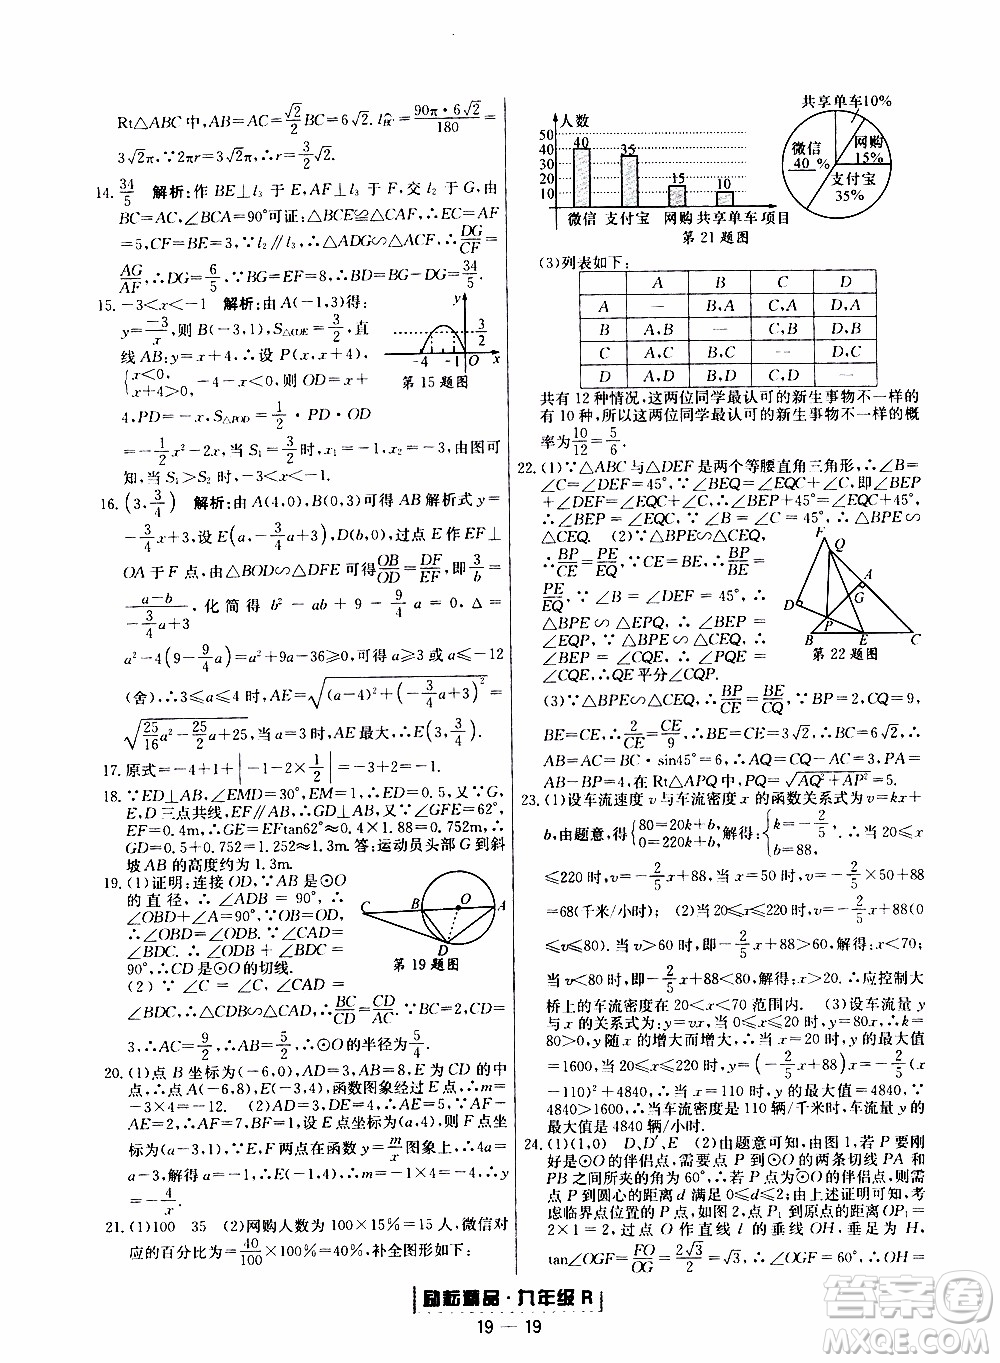 Rt△ABC 中,AB=AC=√2/2 BC=6√2. l弧=90π·6√2/180=
3√2π.∵2πr=3√2π,∴r=3/2 √2.
14. 34/5 解析:作 BE⊥l₃ 于 E,AF⊥l₃ 于 F,交 l₂ 于 G,由
BC=AC,∠BCA=90°可证:△BCE≌△CAF,∴CE=AF
=5,CF=BE=3,∵l₂∥l₃,∴△ADG∽△ACF,∴DG/CF=
AG/AF,∴DG=6/5,∵BG=EF=8,∴BD=34/5.
15. −3<x<−1 解析:由 A(−1,3)得:
y=−3/x,则 B(−3,1),S△COE=3/2,直
线 AB:y=x+4,∴设 P(x,x+4),
{x<0, x+4>0,−4<x<0,则 OD=x+
4,PD=−x,S△POD=1/2·PD·OD
=−1/2x²−2x,当 S₁=3/2时,x₁=−1,x₂=−3,由图可
知,当 S₁>S₂时,−3<x<−1.
y
3/2
−4 −1 O x
第 15 题图
16. (3,3/4) 解析:由 A(4,0),B(0,3)可得 AB 解析式 y=
−3/4x+3,设 E(a,−3/4a+3),D(b,0),过点 E 作 EF⊥
OA 于 F 点,由△BOD∽△DFE 可得OB/OD=DF/EF,即3/b=
(a−b)/(−3/4a+3),化简得 b²−ab+9−9/4a=0,Δ=
a²−4(9−9/4a)=a²+9a−36≥0,可得 a≥3 或 a≤−12
(舍),∴3≤a≤4 时,AE=√((a−4)²+(−3/4a+3)²)
=√(25/16a²−25/2a+25),当 a=3 时,AE 最大,∴E(3,3/4).
17. 原式=−4+1+|1−2×1/2|=−3+1=−1.
18. ∵ED⊥AB,∠EMD=30°,∴ED=0.5,又∵G,
E,D 三点共线,EF∥AB,∴GD⊥AB,∵∠GFE=62°,
EF=0.4m,∴GE=EFtan62°=0.4×1.88=0.752m,∴
GD=0.5+0.752=1.252≈1.3m.答:运动员头部 G 到斜
坡 AB 的高度约为 1.3m.
19. (1)证明:连接 OD,∵AB 是⊙O
的直径,∴∠ADB=90°,∴
∠OBD+∠A=90°,∵OB=OD,
∴∠OBD=∠ODB,∵∠A=
∠BDC.∴∠ODB+∠BDC=
90°,∴CD 是⊙O的切线.
(2)∵∠C=∠C,∠CAD=
∠BDC,∴△CDB∽△CAD,∴BC/CD=CD/AC,∵BC=2,CD=
3,∴AC=9/2,∴AB=AC−BC=5/2,∴⊙O 的半径为5/4.
C B O A D
第 19 题图
20. (1)点 B 坐标为(−6,0),AD=3,AB=8,E 为 CD 的中
点,∴点 A(−6,8),E(−3,4),函数图象经过 E 点,∴m=
−3×4=−12. (2)AB=8,AD=3,∴AE=5,∵AF−AE
=2,∴AF=7,BF=1,设 E 点坐标为(a,4),则 F 点坐标为
(a−3,1),∵E,F 两点在函数 y=m/x图象上,∴4a=
a−3,解得 a=−1,∴E(−1,4),∴m=−1×4=−4,∴y=
−4/x.
21. (1)100 35 (2)网购人数为 100×15%=15 人,微信对
应的百分比为=40/100×100%=40%,补全图形如下:
人数
50
40
30
20
10
0
40 35 15 10
微信 支付宝 网购 共享单车 项目
共享单车10%
微信 40 %
网购 15%
支付宝 35%
第 21 题图
(3)列表如下:
A B C D
A — B,A C,A D,A
B A,B — C,B D,B
C A,C B,C — D,C
D A,D B,D C,D —
共有 12 种情况,这两位同学最认可的新生事物不一样的
有 10 种,所以这两位同学最认可的新生事物不一样的概
率为10/12=5/6.
22. (1)∵△ABC 与△DEF 是两个等腰直角三角形,∴∠B=
∠C=∠DEF=45°,∵∠BEQ=∠EQC+∠C,即∠BEP
+∠DEF=∠EQC+∠C,∴∠BEP+45°=∠EQC+45°,
∴∠BEP=∠EQC,∵∠B=∠C=45°,∴△BPE∽
△CEQ. (2)∵△BPE∽△CEQ,
∴BP/CE=PE/EQ,∵CE=BE,∴BP/BE=
PE/EQ,∵∠B=∠DEF=45°,∴
△BPE∽△EPQ,∴∠BEP=
∠EQP,∵△BPE∽△CEQ,∴
∠BEP=∠CQE,∴∠EQP=
∠CQE,∴QE 平分∠CQP.
F Q A G D P B E C
第 22 题图
(3)∵△BPE∽△CEQ,∴BP/CE=BE/CQ,∵BP=2,CQ=9,
BE=CE,∴2/CE=CE/9,∴BE=CE=3√2,∴BC=6√2,∴
AB=AC=BC·sin45°=6,∴AQ=CQ−AC=3,PA=
AB−BP=4,在 Rt△APQ 中,PQ=√(AQ²+AP²)=5.
23. (1)设车流速度 v 与车流密度 x 的函数关系式为 v=kx+
b,由题意,得{80=20k+b, 0=220k+b,解得:{k=−2/5, b=88,∴当 20≤x
≤220 时,v=−2/5x+88,当 x=50 时,v=−2/5×50+88
=68(千米/小时) (2)当 20≤x≤220 时,v=−2/5x+88(0
≤v≤80).当 v>60 时,即−2/5x+88>60 解得:x<70;当
当 v<80 时,即−2/5x+88<80,解得:x>20,∴应控制大
桥上的车流密度在 20<x<70 范围内. (3)设车流量 y
与 x 的关系式为:y=vx,当 0≤x≤20 时,y=80x,∴k=
80>0,y 随 x 的增大而增大,∴x=20 时,y 的最大值
=1600,当 20≤x≤220 时,y=(−2/5x+88)x=−2/5(x
−110)²+4840,∴当 x=110 时,y 的最大值=4840,∵
4840>1600,∴当车流密度是 110 辆/千米时,车流量 y 的
最大值是 4840 辆/时.
24. (1)(1,0) D,D′,E (2)由题意可知,若 P 要刚
好是⊙O的伴侣点,需点 P 到⊙O的两条切线 PA 和
PB 之间所夹的角为 60°,∴若 P 点为⊙O的伴侣点,则需
点 P 到圆心的距离 d 满足0≤d≤2;由上述证明可知,考
虑临界点位置的 P 点,如图 2,点 P₁ 到原点的距离 OP₁=
2×1=2,过点 O 作直线 l 的垂线 OH,垂足为 H,
tan∠OGF=FO/OG=2√3/2=√3,∴∠OGF=60°,∴OH=
励耘精品·九年级 R
19 — 19
答案圈
MXQE.COM